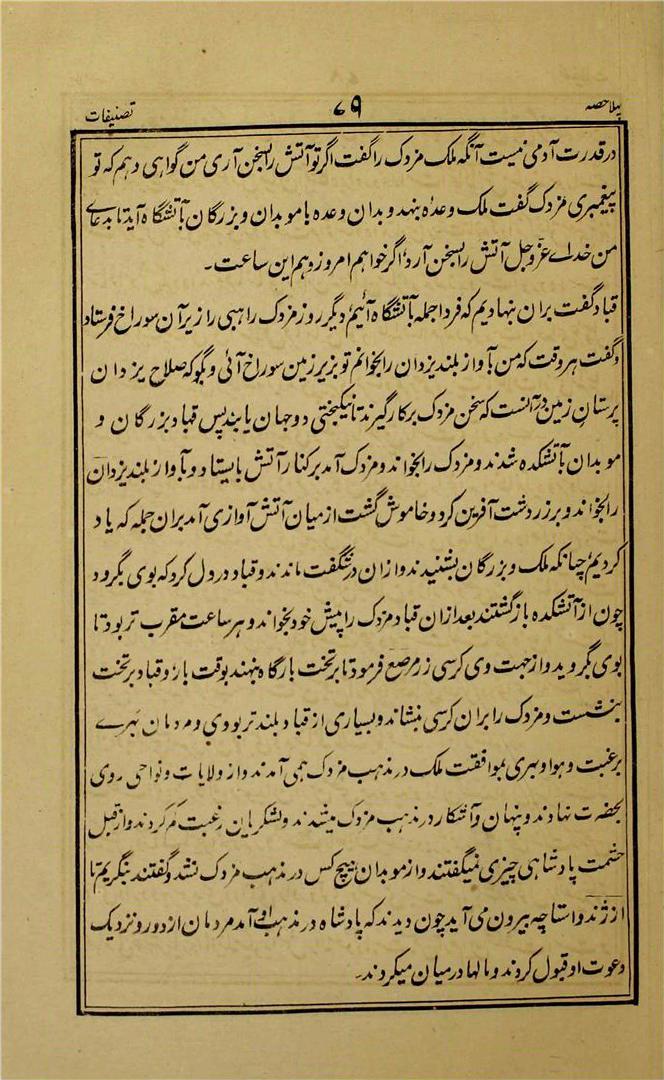 پہلا حصہ ۶۹ تصنیفات
در قدرت آدمی نیست آنگه ملک مزدک را گفت اگر تو آتش را بسخن آری من گواہی دہم که تو
پیغمبری مزدک گفت ملک وعده بنهد و بدان وعده با موبدان و بزرگان بآتشگاه آید تا بدعاے
من خداے عزوجل آتش را بسخن آرد اگر خواہم امروز و ہم این ساعت۔
قباد گفت بران نہادیم که فردا جمله بآتشگاه آئیم دیگر روز مزدک راہبی را زیر آن سوراخ فرستاد
و گفت ہر وقت که من بآواز بلند یزدان را بخوانم تو بزیر زمین سوراخ آئی و بگو که صلاح یزدان
پرستان زمین در آنست که سخن مزدک بر کار گیرند تا نیکبختی دو جهان یابند پس قباد بزرگان و
موبدان بآتشکده شدند و مزدک را بخواند و مزدک آمد بر کنار آتش بایستاد و بآواز بلند یزدان
را بخواند و بر زردشت آفرین کرد و خاموش گشت از میان آتش آوازی آمد بران جمله که یاد
کردیم چنانکه ملک و بزرگان بشنیدند و ازان در شگفت ماندند و قباد در دل کرد که بوی بگرود
چون از آتشکده بازگشتند بعد ازان قباد مزدک را پیش خود بخواند و ہر ساعت مقرب تر بود تا
بوی بگروید و از جہت وی کرسی زر مرصع فرمود تا بر تخت بارگاه بنهند بوقت بار و قباد بر تخت
بنشست و مزدک را بران کرسی بنشاند و بسیاری از قباد بلند تر بودی و مردمان بہرے
برغبت و ہوا و بہری بموافقت ملک در مذہب مزدک ہمی آمدند و از ولایات و نواحی روی
بحضرت نہادند و پنهان و آشکار در مذہب مزدک میشدند و لشکریان رغبت کم کردند و از قبل
حشمت پادشاہی چیزی نمیگفتند و از موبدان ہیچ کس در مذہب مزدک نشد و گفتند بنگریم تا
از ژند و استا چه بیرون می آید چون دیدند که پادشاه در مذہب او آمد مردمان از دور و نزدیک
دعوت او قبول کردند و مالها در میان میکردند۔